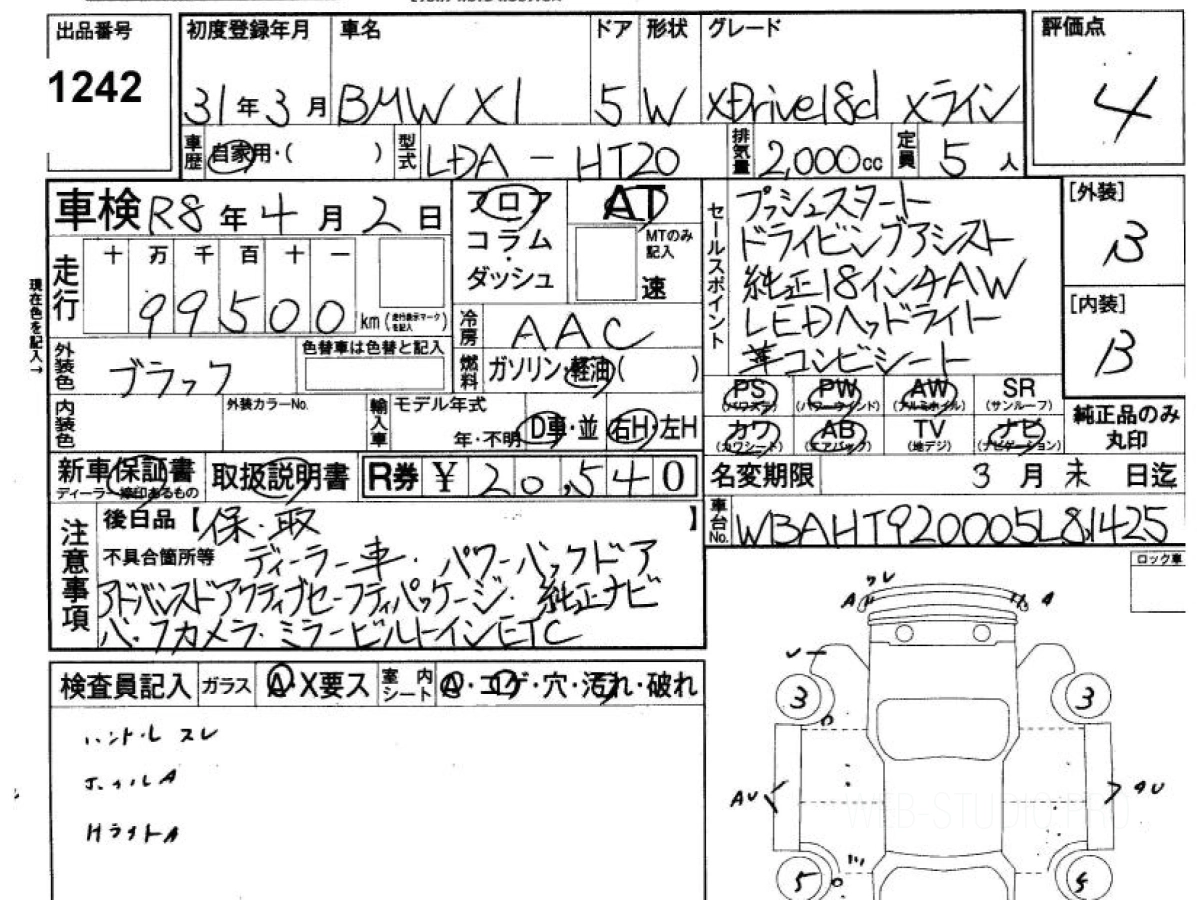 出品番号
1242
初度登録年月 車名 ドア 形状 グレード
31年3月 BMW X1 5 W xDrive18d xライン
評価点
4
車歴 自家用・( ) 型式 LDA-HT20 排気量 2,000cc 定員 5人
車検 R8年4月2日
フロア
コラム
ダッシュ
AT
MTのみ記入
速
セールスポイント
プッシュスタート
ドライビングアシスト
純正18インチAW
LEDヘッドライト
革コンビシート
[外装]
B
[内装]
B
現在色を記入→
走行 十 万 千 百 十 一
99500km (走行表示マークを記入)
冷房 AAC
外装色 ブラック
色替車は色替と記入
燃料 ガソリン・軽油( )
PS (パワステ) PW (パワーウインド) AW (アルミホイル) SR (サンルーフ)
カワ (カワシート) AB (エアバック) TV (地デジ) ナビ (ナビゲーション)
純正品のみ丸印
内装色 外装カラーNo.
輸入車 モデル年式
年・不明 D車・並 右H・左H
新車保証書
ディーラー捺印あるもの
取扱説明書
R券 ¥ 20,540
名変期限 3月末日迄
車台No. WBAHT920005L81425
注意事項
後日品【保・取】
不具合箇所等 ディーラー車・パワーバックドア
アドバンスドアクティブセーフティパッケージ・純正ナビ
バックカメラ・ミラービルトインETC
ロック車
検査員記入 ガラス A・X要ス 室内シート A・コゲ・穴・汚れ・破れ
ハンドル スレ
ホイルA
HライトA
ワレ
A A
3 3
AU AU
5
WEB-STUDIO.PRO